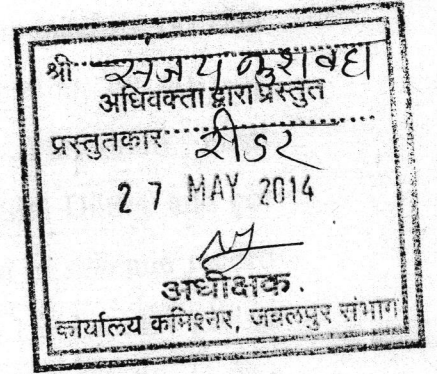 श्री संजय कुशवहा
अधिवक्ता द्वारा प्रस्तुत
प्रस्तुतकार रीडर
27 MAY 2014
अधीक्षक.
कार्यालय कमिश्नर, जबलपुर संभाग